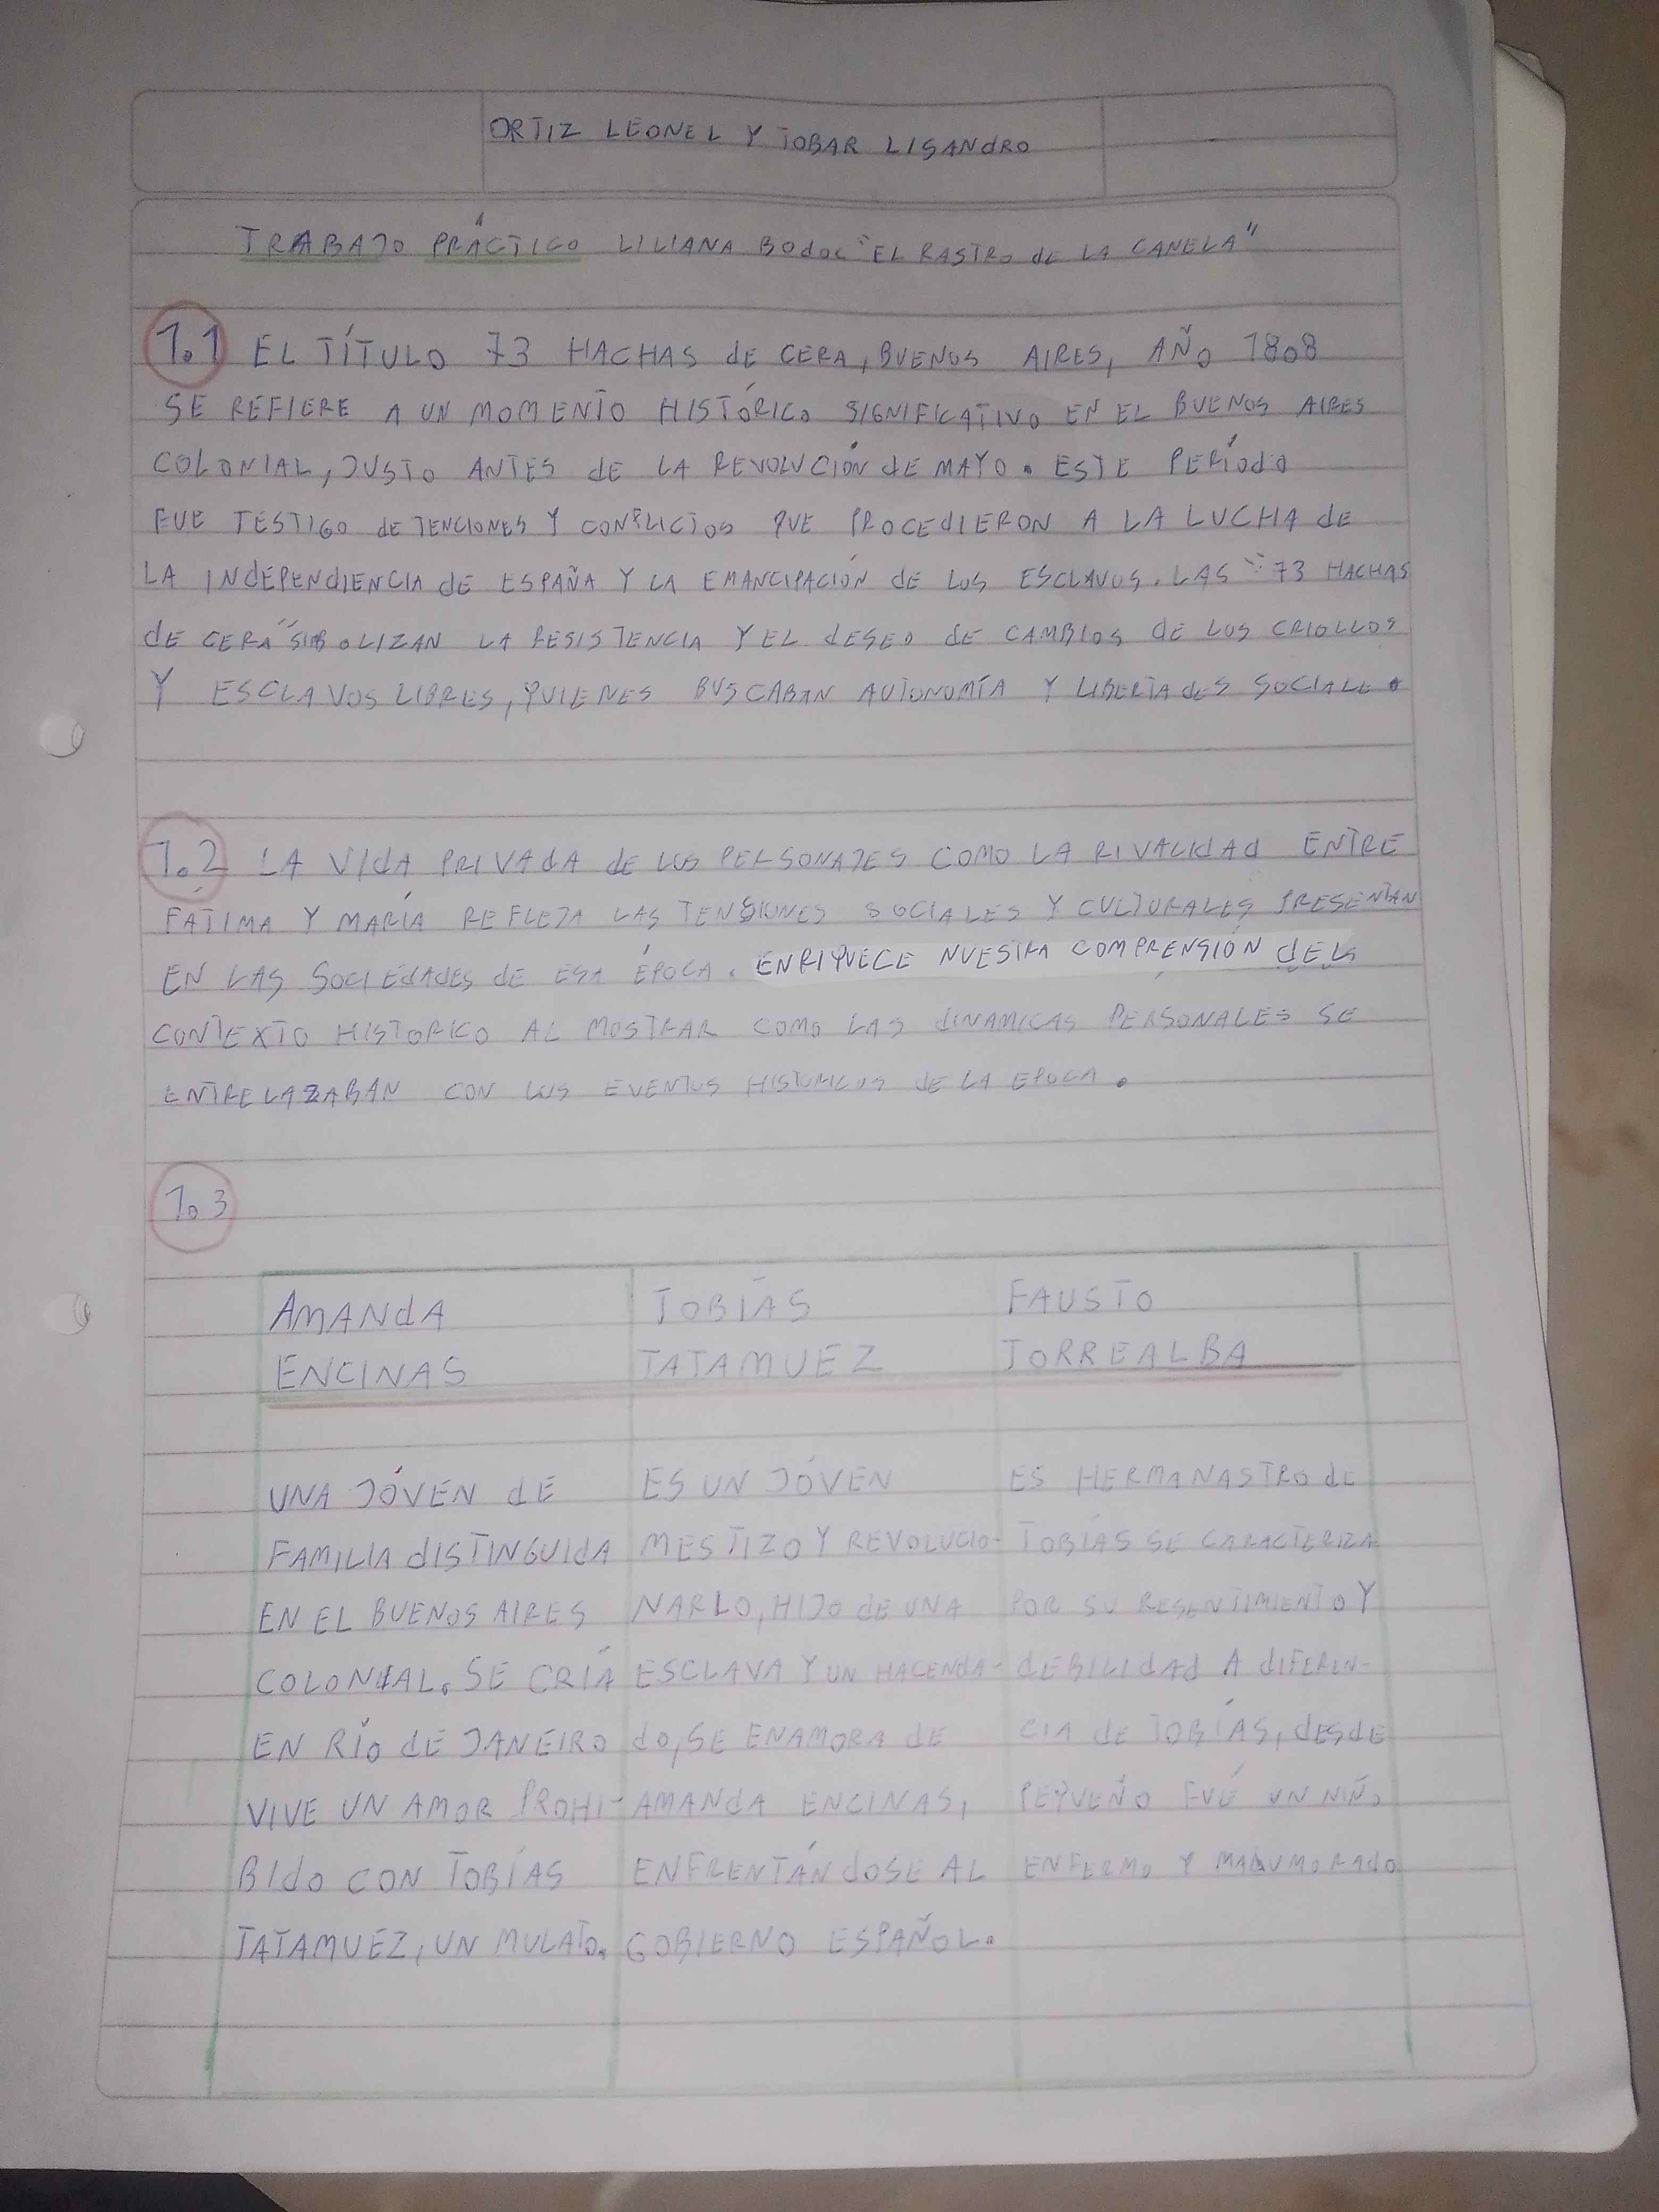 ORTIZ LEONEL Y TOBAR LISANDRO
TRABAJO PRÁCTICO LILIANA BODOC "EL RASTRO DE LA CANELA"
1.1 EL TÍTULO 73 HACHAS DE CERA, BUENOS AIRES, AÑO 1808
SE REFIERE A UN MOMENTO HISTÓRICO SIGNIFICATIVO EN EL BUENOS AIRES
COLONIAL, JUSTO ANTES DE LA REVOLUCIÓN DE MAYO. ESTE PERÍODO
FUE TESTIGO DE TENCIONES Y CONFLICTOS QUE PROCEDIERON A LA LUCHA DE
LA INDEPENDIENCIA DE ESPAÑA Y LA EMANCIPACIÓN DE LOS ESCLAVOS. LAS "73 HACHAS
DE CERA" SIBOLIZAN LA RESISTENCIA Y EL DESEO DE CAMBIOS DE LOS CRIOLLOS
Y ESCLAVOS LIBRES, QUIENES BUSCABAN AUTONOMÍA Y LIBERTADES SOCIALE.
1.2 LA VIDA PRIVADA DE LOS PERSONAJES COMO LA RIVALIDAD ENTRE
FÁTIMA Y MARÍA REFLEJA LAS TENSIONES SOCIALES Y CULTURALES PRESENTAN
EN LAS SOCIEDADES DE ESA ÉPOCA. ENRIQUECE NUESTRA COMPRENSIÓN DEL
CONTEXTO HISTÓRICO AL MOSTRAR COMO LAS DINAMICAS PERSONALES SE
ENTRELAZABAN CON LOS EVENTOS HISTORICOS DE LA EPOCA.
1.3
AMANDA TOBÍAS FAUSTO
ENCINAS TATAMUEZ TORREALBA
UNA JÓVEN DE ES UN JÓVEN ES HERMANASTRO DE
FAMILIA DISTINGUIDA MESTIZO Y REVOLUCIO- TOBÍAS SE CARACTERIZA
EN EL BUENOS AIRES NARIO, HIJO DE UNA POR SU RESENTIMIENTO Y
COLONIAL. SE CRÍA ESCLAVA Y UN HACENDA- DEBILIDAD A DIFEREN-
EN RÍO DE JANEIRO DO, SE ENAMORA DE CIA DE TOBÍAS, DESDE
VIVE UN AMOR PROHI- AMANDA ENCINAS, PEQUEÑO FUÉ UN NIÑO
BIDO CON TOBÍAS ENFRENTÁNDOSE AL ENFERMO Y MALUMORADO
TATAMUEZ, UN MULATO. GOBIERNO ESPAÑOL.